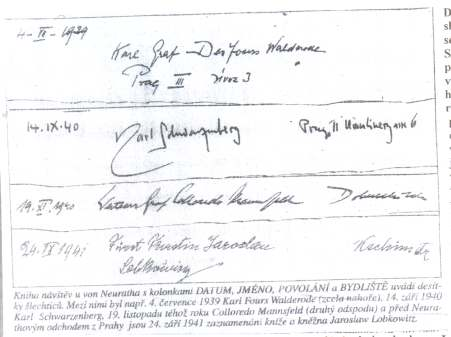 4-VII-1939
Karl Graf Des Fours Walderode
Prag III
14.IX.40
Karl Schwarzenberg
19.XI.1940 Colloredo Mannsfeld
24.IX 1941 Fürst Jaroslav
Lobkowicz
Knihu návštěv u von Neuratha s kolonkami DATUM, JMÉNO, POVOLÁNÍ a BYDLIŠTĚ uvádí desít-
ky šlechticů. Mezi nimi byl např. 4. července 1939 Karl Fours Walderode (zcela nahoře), 14. září 1940
Karl Schwarzenberg, 19. listopadu téhož roku Colloredo Mannsfeld (druhý odspodu) a před Neura-
thovým odchodem z Prahy jsou 24. září 1941 zaznamenáni kníže a kněžna Jaroslaw Lobkowitz.